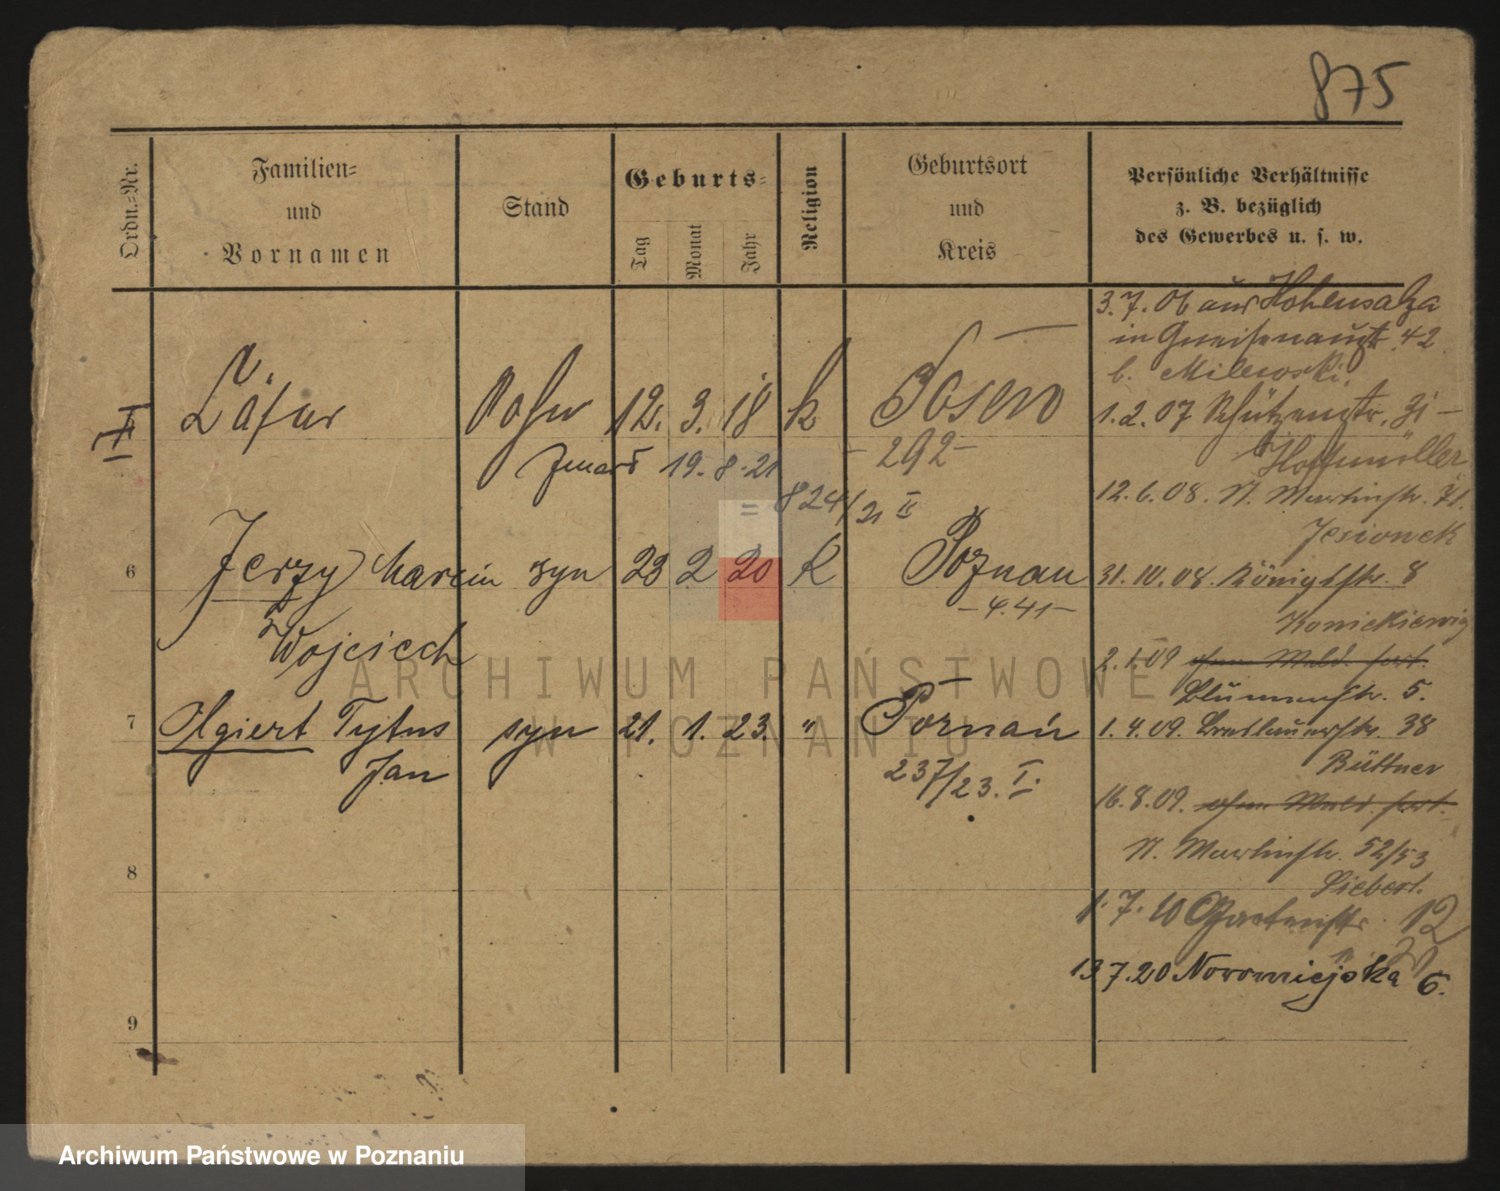 875
Ordn.-Nr.
Familien-
und
Vornamen
Stand
Geburts-
Tag
Monat
Jahr
Religion
Geburtsort
und
Kreis
Persönliche Verhältnisse
z. B. bezüglich
des Gewerbes u. s. w.
3.7.06 aus Hohensalza
in Gneisenaustr. 42
b. Milewski.
12. 3. 18 k Posen
1.2.07 Schützenstr. 31
- 292 -
Hoffmüller
zmarł 19. 8. 21
= 824/21 II
12.6.08. St. Martinstr. 71.
Jesionek
6 Jerzy Marcin syn 23 2 20 k Poznań
31.10.08. Königstr. 8
- 4.41 -
Wojciech
Konickiewicz
2.1.09 ohne Meld. fort.
Blumenstr. 5.
7 Olgiert Tytus syn 21. 1. 23. " Poznań
1.4.09. Breslauerstr. 38
Jan
237/23. I.
Büttner
16.8.09. ohne Meld. fort.
St. Martinstr. 52/53
8
Siebert.
1.7.10 Gartenstr. 12
13 7.20 Nowomiejska 6.
9
ARCHIWUM PAŃSTWOWE
W POZNANIU
Archiwum Państwowe w Poznaniu